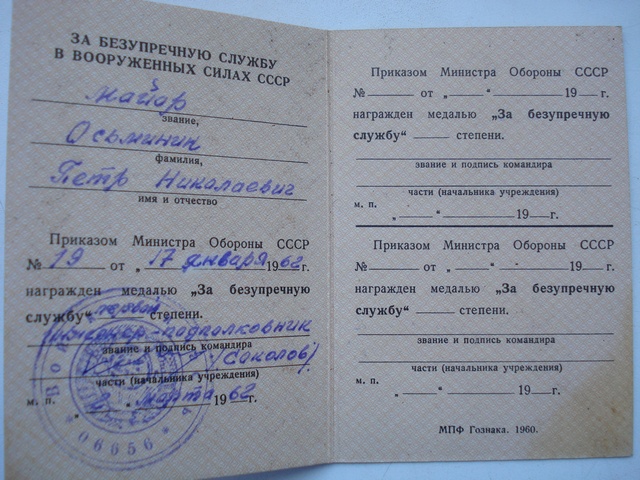 ЗА БЕЗУПРЕЧНУЮ СЛУЖБУ
В ВООРУЖЕННЫХ СИЛАХ СССР
майор
звание,
Осьминин
фамилия,
Петр Николаевич
имя и отчество
Приказом Министра Обороны СССР
№ 19 от „17 января 1962 г.
награжден медалью „За безупречную
службу“ первой степени.
инженер-подполковник
звание и подпись командира
(Соколов)
части (начальника учреждения)
м. п. марта 1962 г.
06656
Приказом Министра Обороны СССР
№ от „ “ 19 г.
награжден медалью „За безупречную
службу“ степени.
звание и подпись командира
части (начальника учреждения)
м. п.
„ “ 19 г.
Приказом Министра Обороны СССР
№ от „ “ 19 г.
награжден медалью „За безупречную
службу“ степени.
звание и подпись командира
части (начальника учреждения)
м. п.
„ “ 19 г.
МПФ Гознака. 1960.